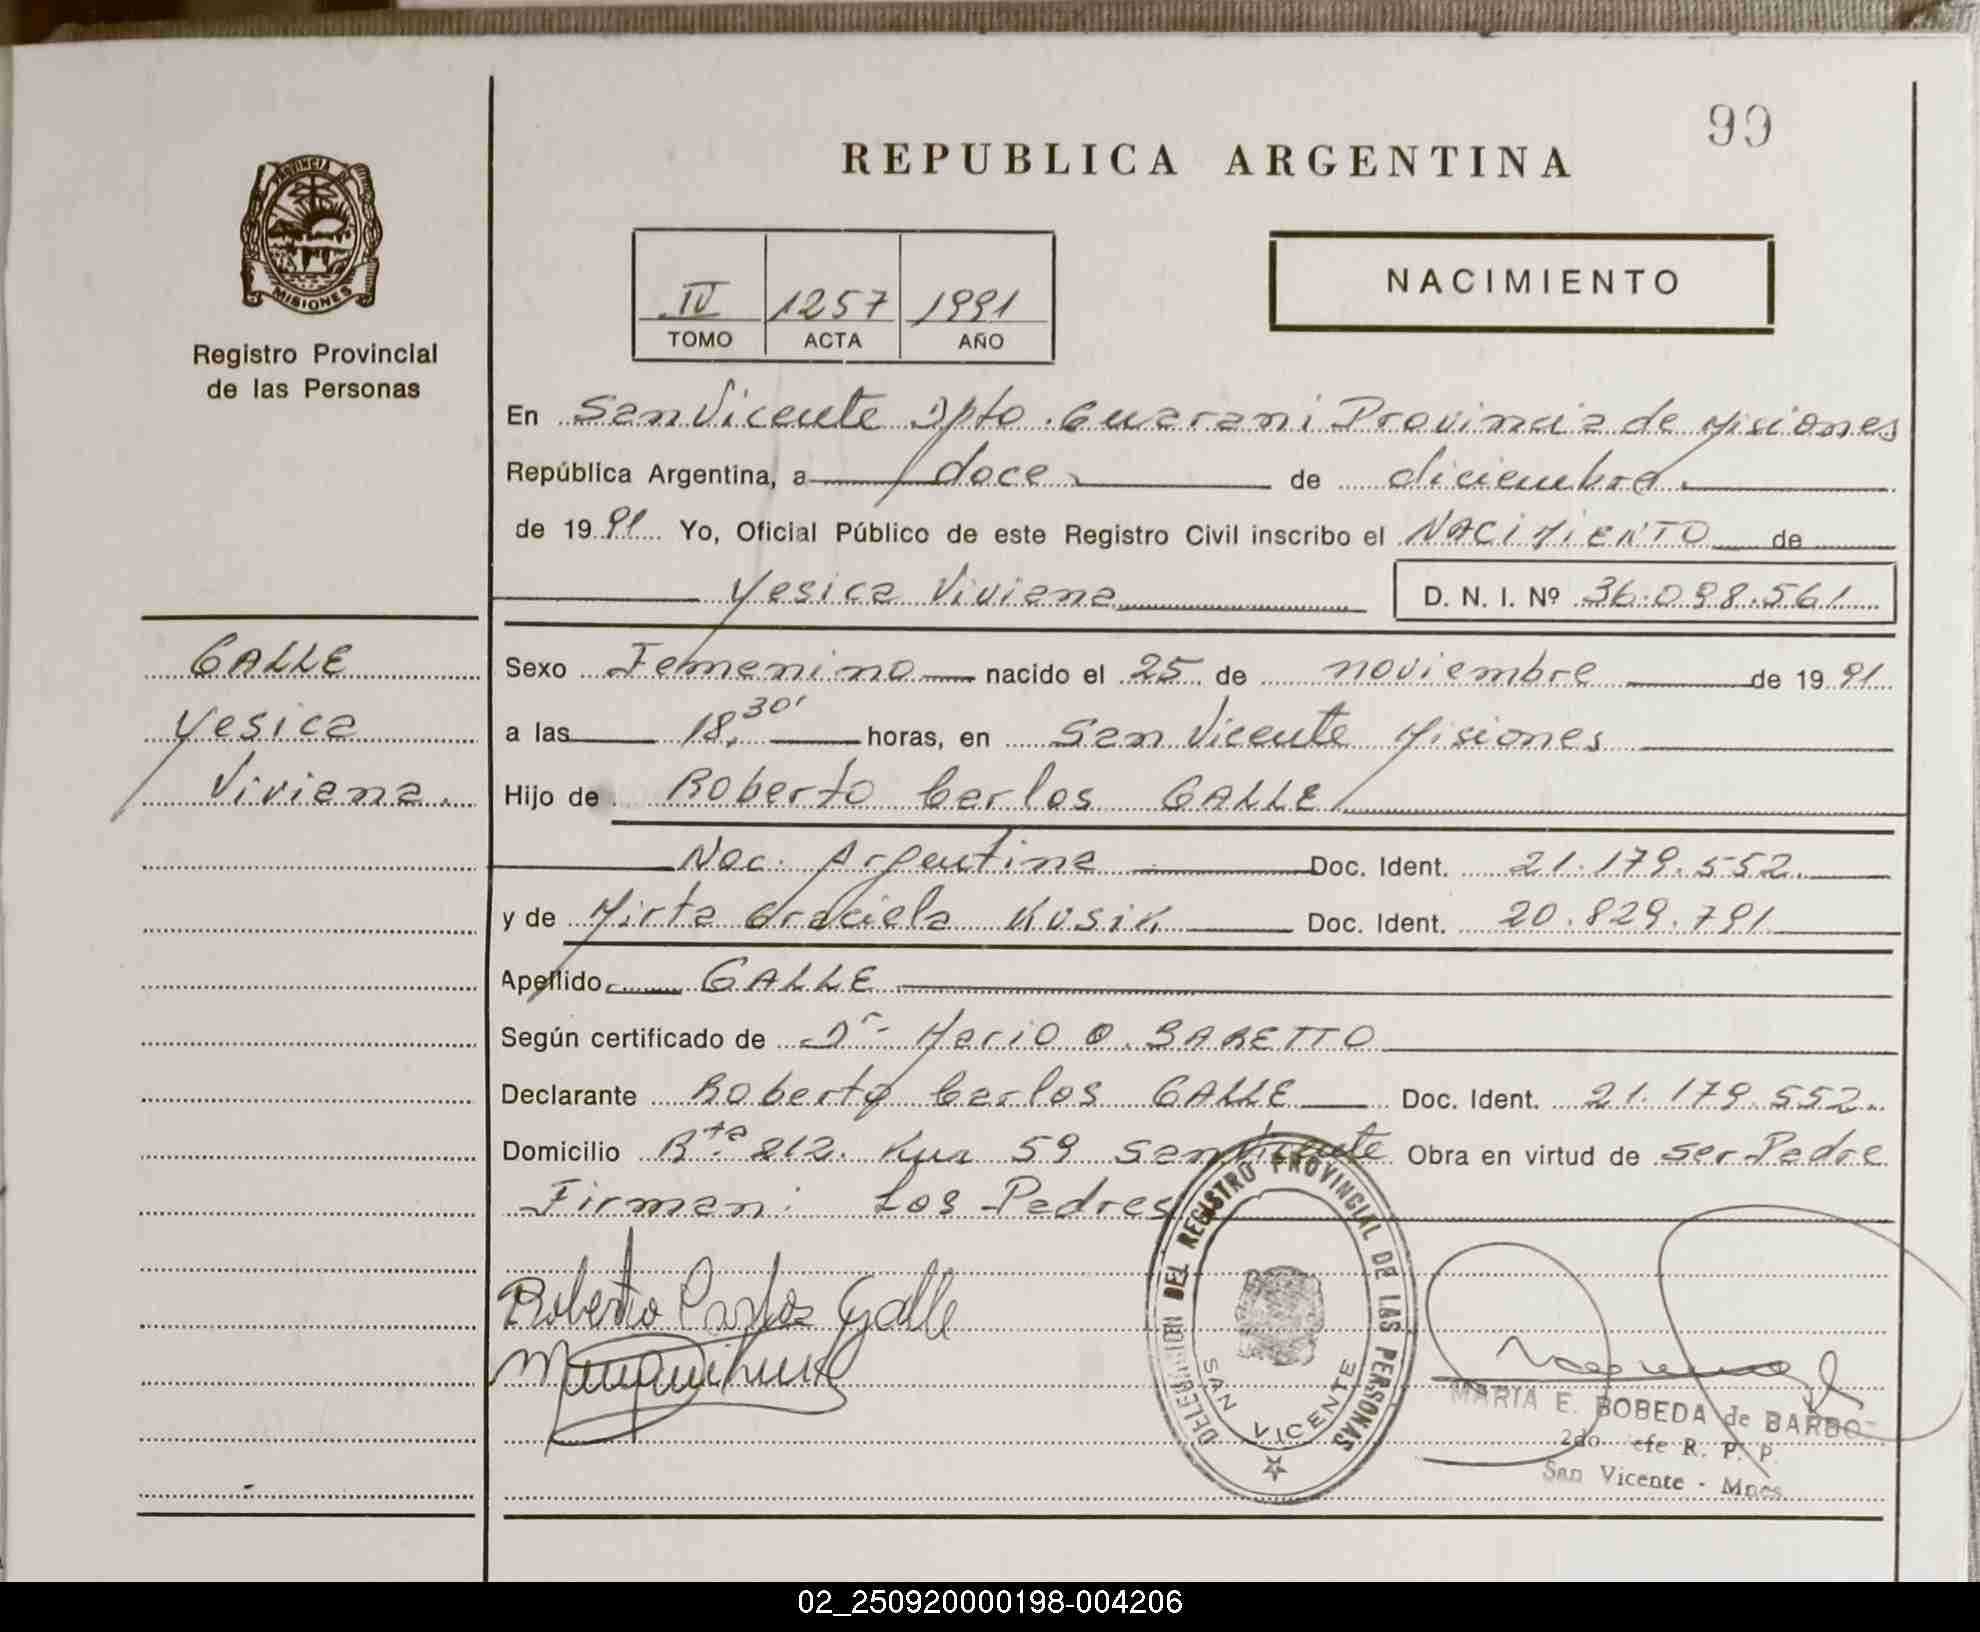 99
REPUBLICA ARGENTINA
PROVINCIA DE
MISIONES
Registro Provincial
de las Personas
NACIMIENTO
IV 1257 1991
TOMO ACTA AÑO
En San Vicente Dpto. Guarani Provincia de Misiones
República Argentina, a doce de diciembre
de 1991 Yo, Oficial Público de este Registro Civil inscribo el NACIMIENTO de
Yesica Viviana D. N. I. Nº 36.098.561
GALLE
Yesica
Viviana.
Sexo Femenino nacido el 25 de noviembre de 1991
a las 18,30' horas, en San Vicente Misiones
Hijo de Roberto Carlos GALLE
Nac. Argentina Doc. Ident. 21.179.552.
y de Mirta Graciela KUSIK Doc. Ident. 20.829.791
Apellido GALLE
Según certificado de Dr. Mario O. BARETTO
Declarante Roberto Carlos GALLE Doc. Ident. 21.179.552.
Domicilio Rta 212. Km 59 San Vicente Obra en virtud de ser Padre
Firman: Los Padres
Roberto Carlos Galle
DELEGACION DEL REGISTRO PROVINCIAL DE LAS PERSONAS
SAN VICENTE
MARIA E. BOBEDA de BARBO
2do. Jefe R. P. P.
San Vicente - Mnes.
02_250920000198-004206